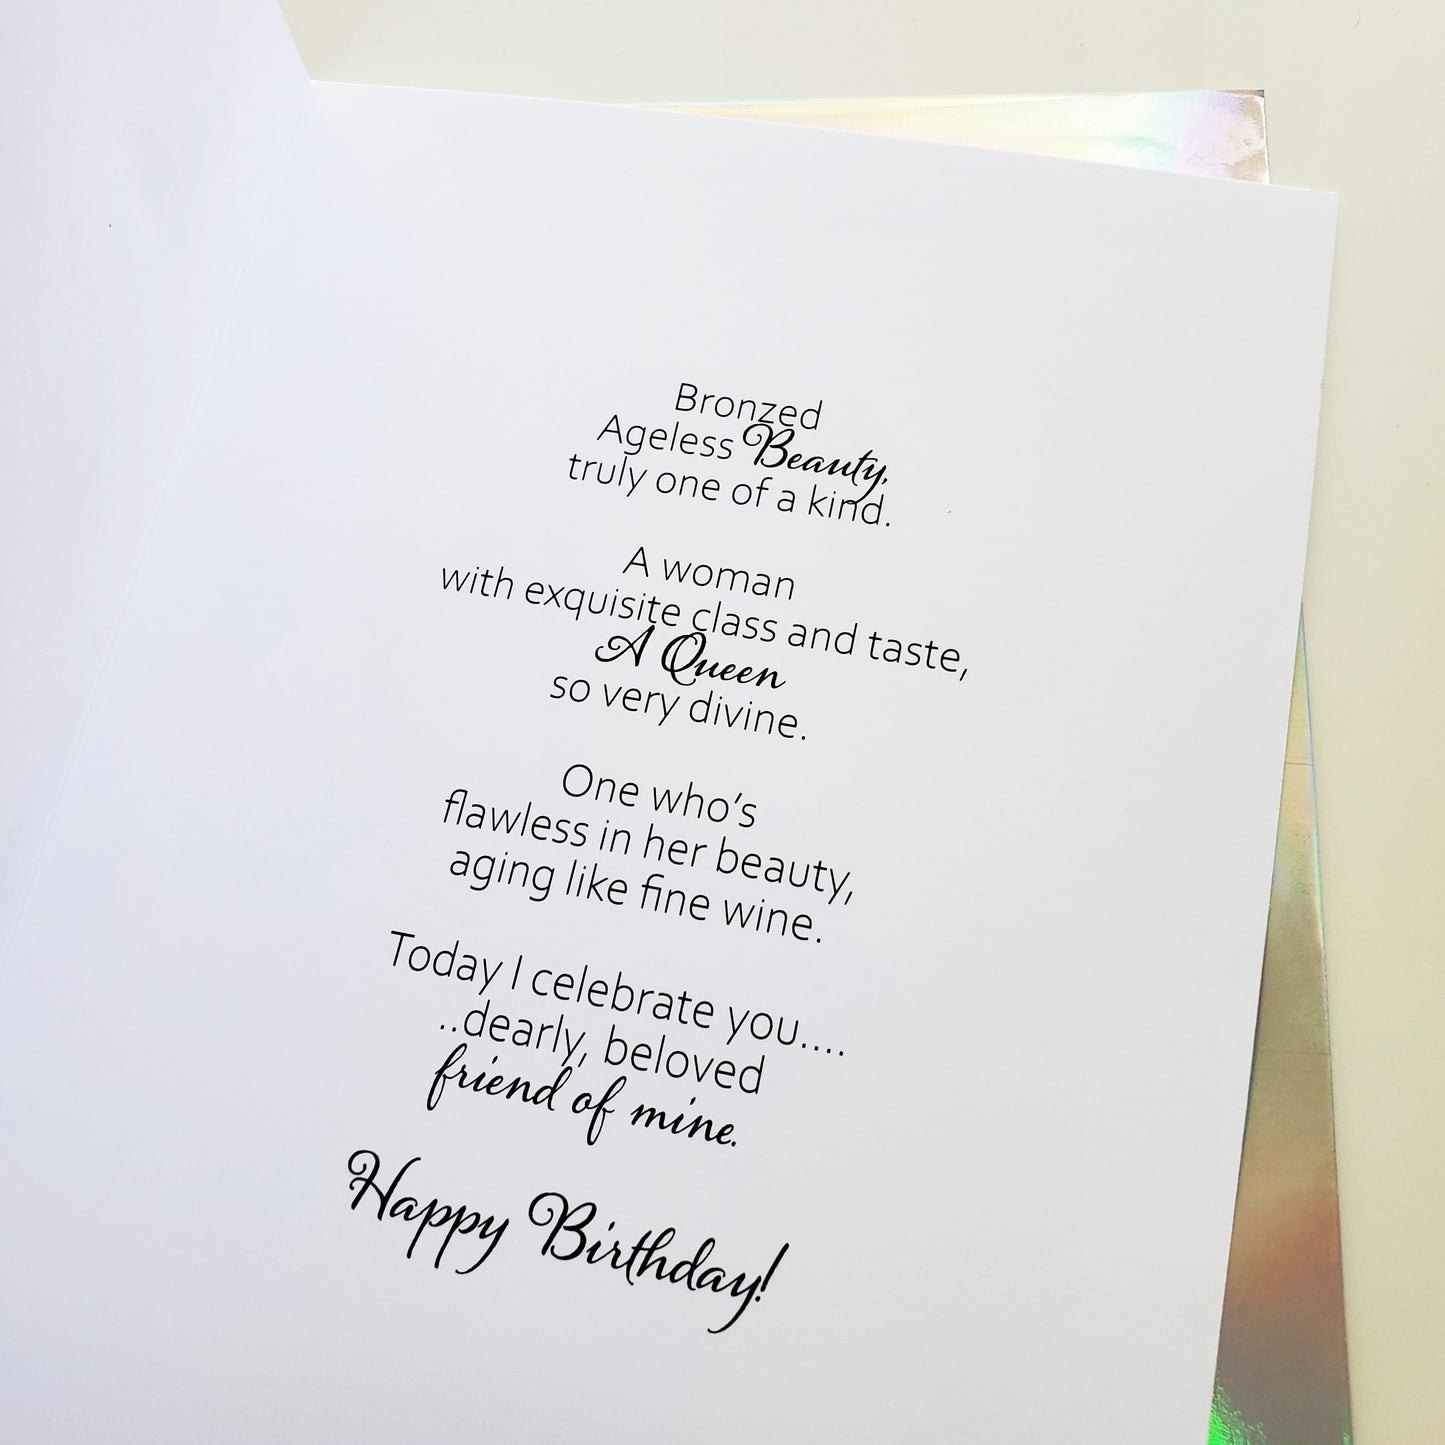 Bronzed
Ageless Beauty,
truly one of a kind.
A woman
with exquisite class and taste,
A Queen
so very divine.
One who's
flawless in her beauty,
aging like fine wine.
Today I celebrate you....
..dearly, beloved
friend of mine.
Happy Birthday!